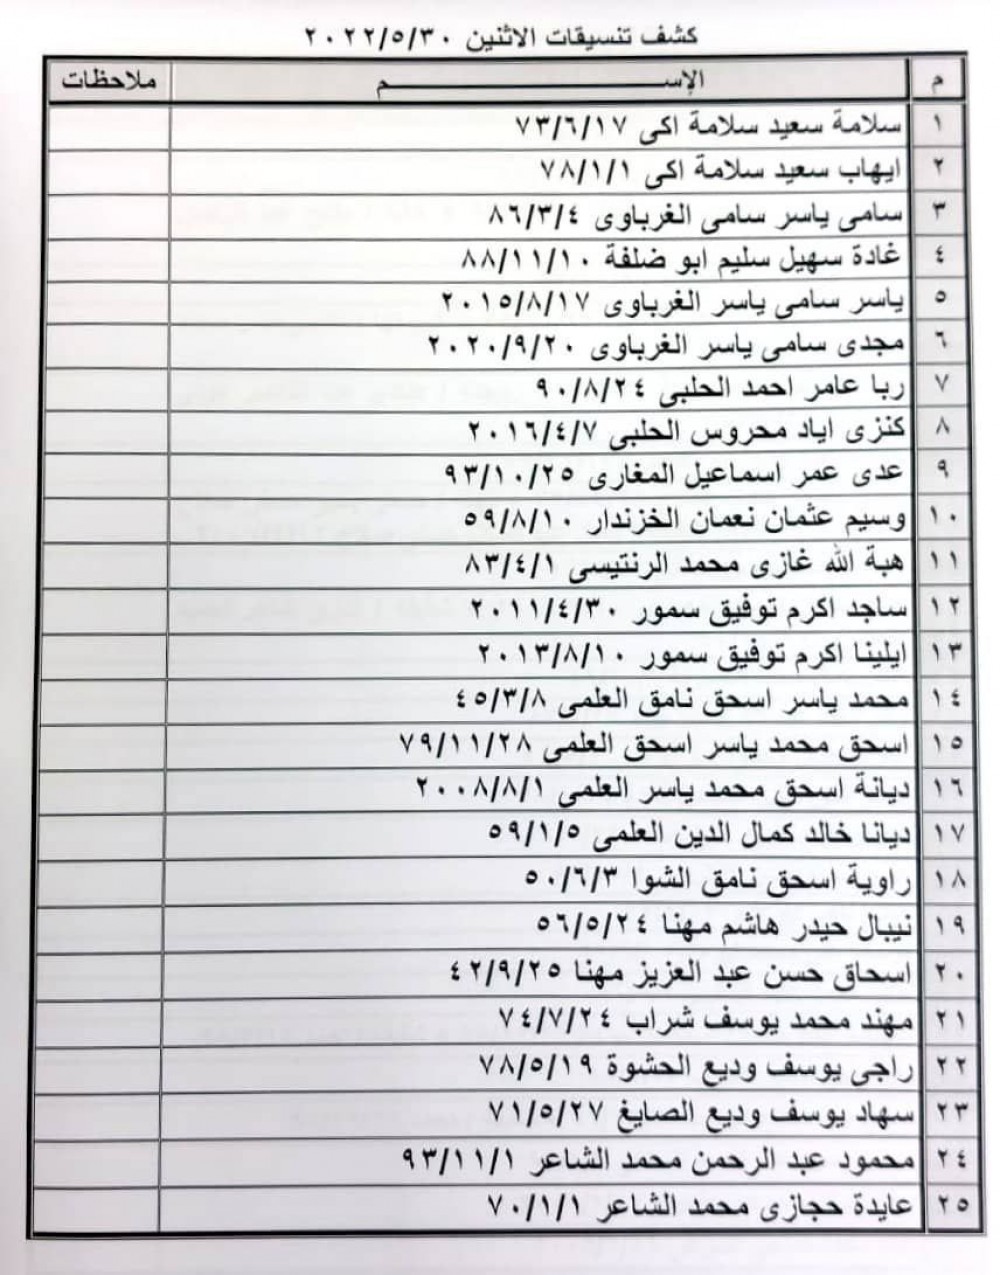 كشف تنسيقات الاثنين ٢٠٢٢/٥/٣٠
م الإســـــم ملاحظات
١ سلامة سعيد سلامة اكى ٧٣/٦/١٧
٢ ايهاب سعيد سلامة اكى ٧٨/١/١
٣ سامى ياسر سامى الغرباوى ٨٦/٣/٤
٤ غادة سهيل سليم ابو ضلفة ٨٨/١١/١٠
٥ ياسر سامى ياسر الغرباوى ٢٠١٥/٨/١٧
٦ مجدى سامى ياسر الغرباوى ٢٠٢٠/٩/٢٠
٧ ربا عامر احمد الحلبى ٩٠/٨/٢٤
٨ كنزى اياد محروس الحلبى ٢٠١٦/٤/٧
٩ عدى عمر اسماعيل المغارى ٩٣/١٠/٢٥
١٠ وسيم عثمان نعمان الخزندار ٥٩/٨/١٠
١١ هبة الله غازى محمد الرنتيسى ٨٣/٤/١
١٢ ساجد اكرم توفيق سمور ٢٠١١/٤/٣٠
١٣ ايلينا اكرم توفيق سمور ٢٠١٣/٨/١٠
١٤ محمد ياسر اسحق نامق العلمى ٤٥/٣/٨
١٥ اسحق محمد ياسر اسحق العلمى ٧٩/١١/٢٨
١٦ ديانة اسحق محمد ياسر العلمى ٢٠٠٨/٨/١
١٧ ديانا خالد كمال الدين العلمى ٥٩/١/٥
١٨ راوية اسحق نامق الشوا ٥٠/٦/٣
١٩ نيبال حيدر هاشم مهنا ٥٦/٥/٢٤
٢٠ اسحاق حسن عبد العزيز مهنا ٤٢/٩/٢٥
٢١ مهند محمد يوسف شراب ٧٤/٧/٢٤
٢٢ راجى يوسف وديع الحشوة ٧٨/٥/١٩
٢٣ سهاد يوسف وديع الصايغ ٧١/٥/٢٧
٢٤ محمود عبد الرحمن محمد الشاعر ٩٣/١١/١
٢٥ عايدة حجازى محمد الشاعر ٧٠/١/١